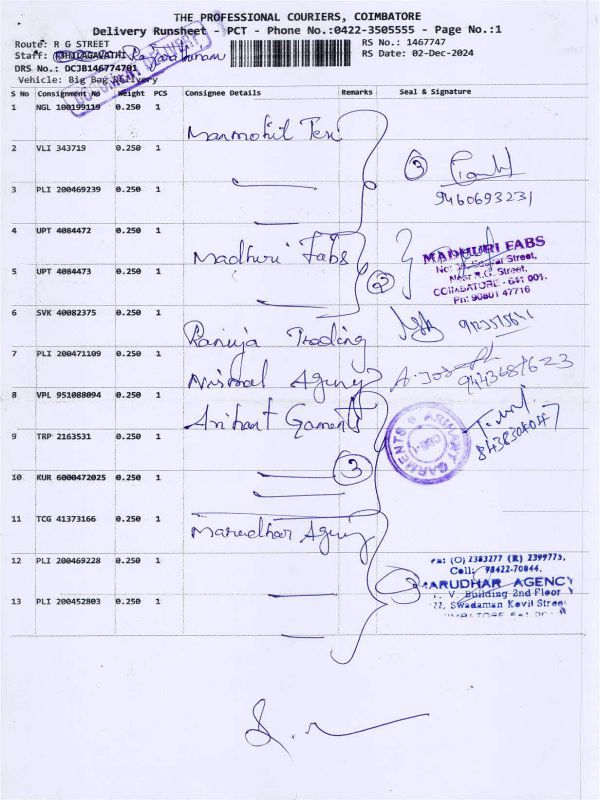 THE PROFESSIONAL COURIERS, COIMBATORE
Delivery Runsheet - PCT - Phone No.:0422-3505555 - Page No.:1
Route: R G STREET
RS No.: 1467747
Staff:
RS Date: 02-Dec-2024
DRS No.: DCJB146774701
Vehicle: Big Bag Delivery
S No Consignment No Weight PCS Consignee Details Remarks Seal & Signature
1 NGL 100199119 0.250 1
2 VLI 343719 0.250 1
3 PLI 200469239 0.250 1
3
9460693231
4 UPT 4084472 0.250 1 Madhuri Fabs
MADHURI FABS
Street,
Near R.G. Street,
COIMBATORE - 641 001.
5 UPT 4084473 0.250 1
2
6 SVK 40082375 0.250 1 Ranuja Trading
7 PLI 200471109 0.250 1 Nirmal Agency
8 VPL 951088094 0.250 1 Arihant Garments
ARIHANT GARMENTS
9 TRP 2163531 0.250 1
10 KUR 6000472025 0.250 1
3
11 TCG 41373166 0.250 1 Marudhar Agency
12 PLI 200469228 0.250 1
(O) 2383277 (R) 2399775,
Cell: 98422-70844,
ARUDHAR AGENCY
V. Building 2nd Floor
22, Swadaman Kovil Street
13 PLI 200452803 0.250 1